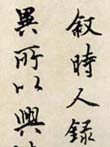 叙時人録
異所以興